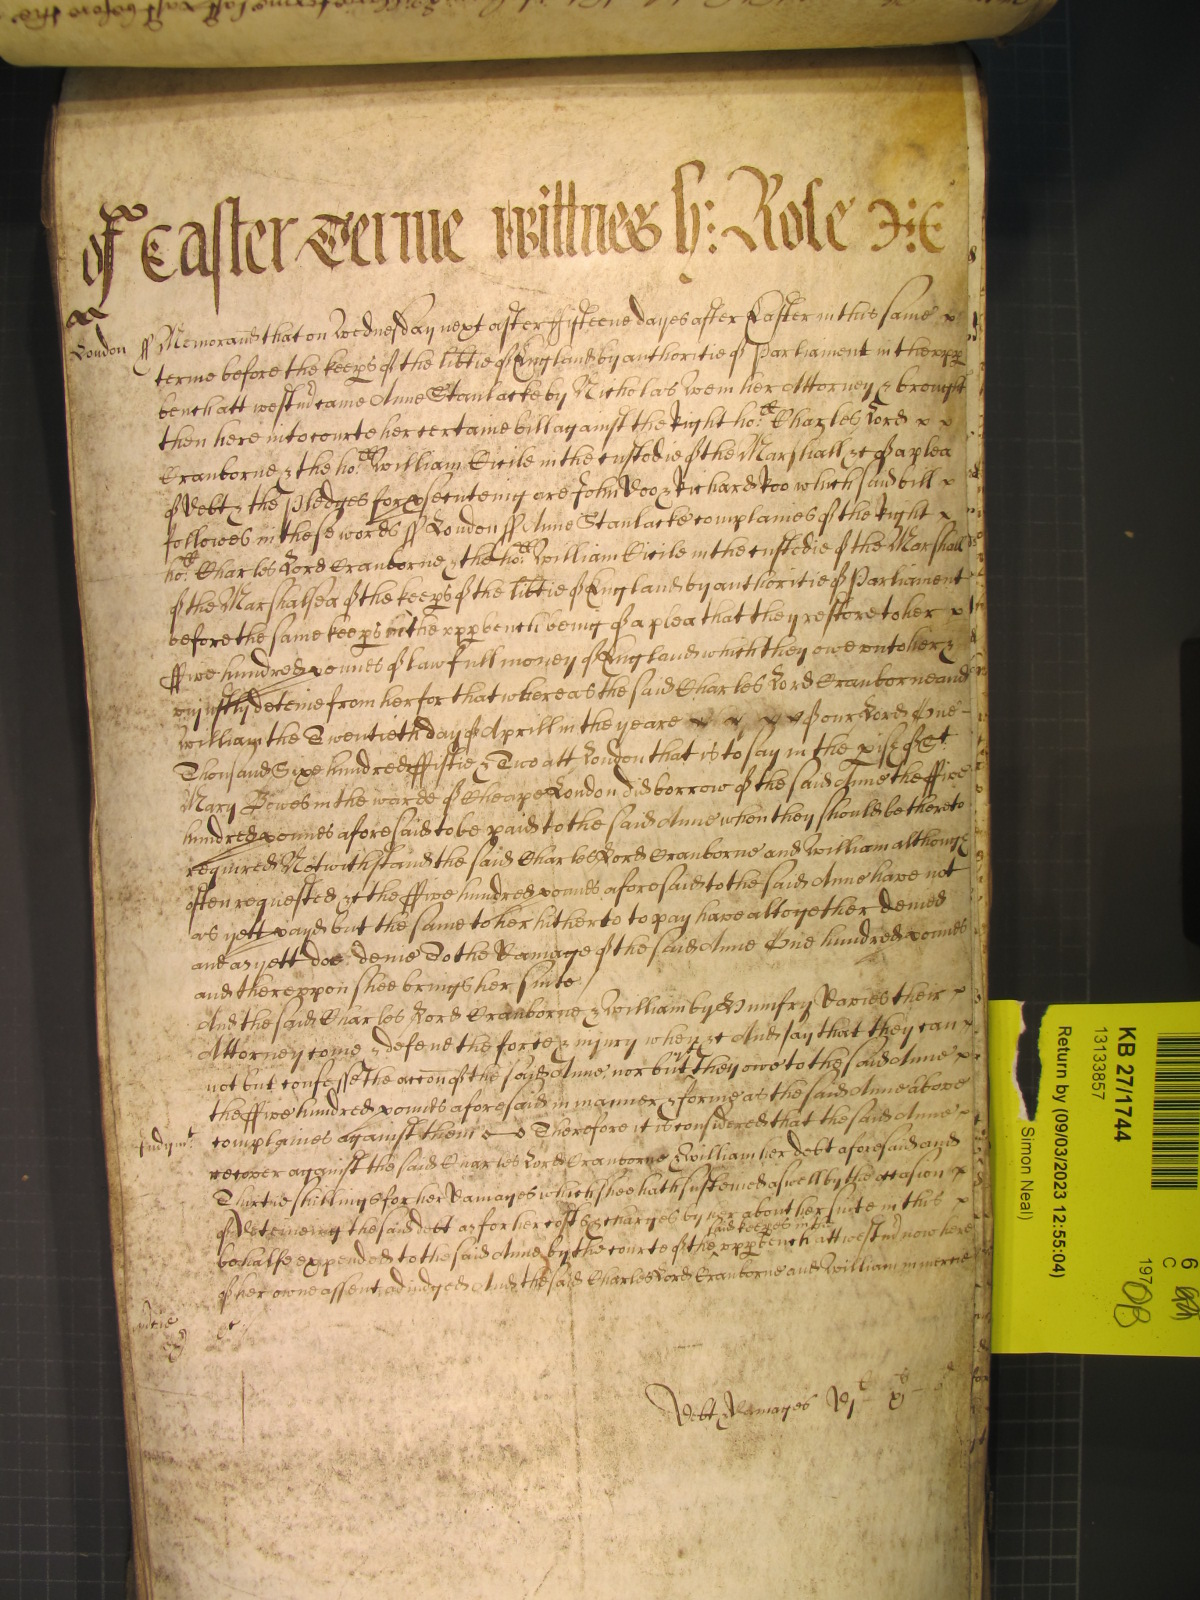 of Easter Terme Wittnes H: Role
London ff Memorand that on Wednesday next after ffifteene dayes after Easter in this same
terme before the keeps of the libtie of England by authoritie of Parliament in the upp
bench att westm came Anne Stanlacke by Nicholas Wem her Attorney & brought
then here into courte her certaine bill against the Right hoble Charles Lord
Cranborne & the hoble William Cicile in the custodie of the Marshall &c of a plea
of Debt & the Pledges for psecuteing are John Doo & Richard Roo which said bill
followes in these words ff London ff Anne Stanlacke complaines of the Right
hoble Charles Lord Cranborne & the hoble William Cicile in the custodie of the Marshall
of the Marshalsea of the keeps of the libtie of England by authoritie of Parliament
before the same keeps in the upp bench being of a plea that they restore to her
ffive hundred pounds of lawfull money of England which they owe unto her &
unjustly deteine from her for that whereas the said Charles Lord Cranborne and
William the Twentieth day of Aprill in the yeare of our Lord One
Thousand Sixe hundred ffiftie & Two att London that is to say in the pish of St
Mary Bowes in the warde of Cheape London did borrow of the said Anne the ffive
hundred pounds aforesaid to be paid to the said Anne when they should be thereto
required Notwithstand the said Charles Lord Cranborne and William although
often requested &c the ffive hundred pounds aforesaid to the said Anne have not
as yett payd but the same to her hitherto to pay have altogether denied
and as yett doe denie To the Damage of the said Anne One hundred pounds
and thereuppon shee brings her suite /
And the said Charles Lord Cranborne & William by Humfry Davies their
Attorney come & defend the force & injury when &c And say that they can
not but confesse the accon of the said Anne nor but yt they owe to the said Anne
the ffive hundred pounds aforesaid in manner & forme as the said Anne above
Judgmt complaines against them Therefore it is considered that the said Anne
recover against the said Charles Lord Cranborne & William her debt aforesaid and
Thirtie shillings for her Damages which shee hath susteined aswell by the occasion
of deteineing the said debt as for her costs & charges by her about her suite in this
behalfe expended to the said Anne by the courte of the said keeps in the upp bench att westm now here
of her owne assent adiudged And the said Charles Lord Cranborne and William in mercie
&c /
Debt & Damages
KB 27/1744
13133857
Return by (09/03/2023 12:55:04)
Simon Neal)
6
C
197